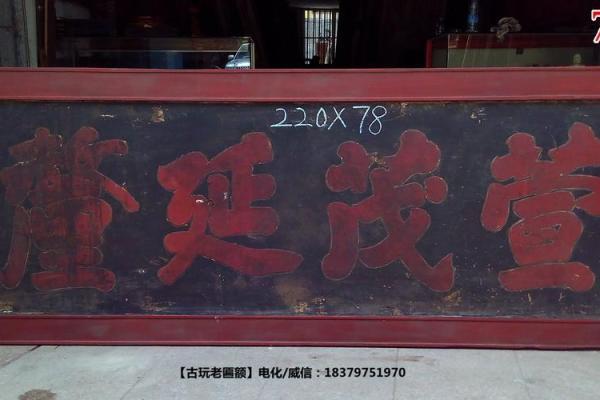 220X78
萱茂延釐
【古玩老匾额】电化/威信：18379751970